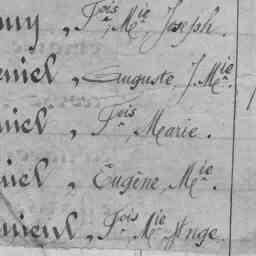 my, Fois Mie Joseph.
eniel, Auguste J. Mie
niel, Fois Marie.
niel, Eugène, Mie
nient, Fois Mie Ange.